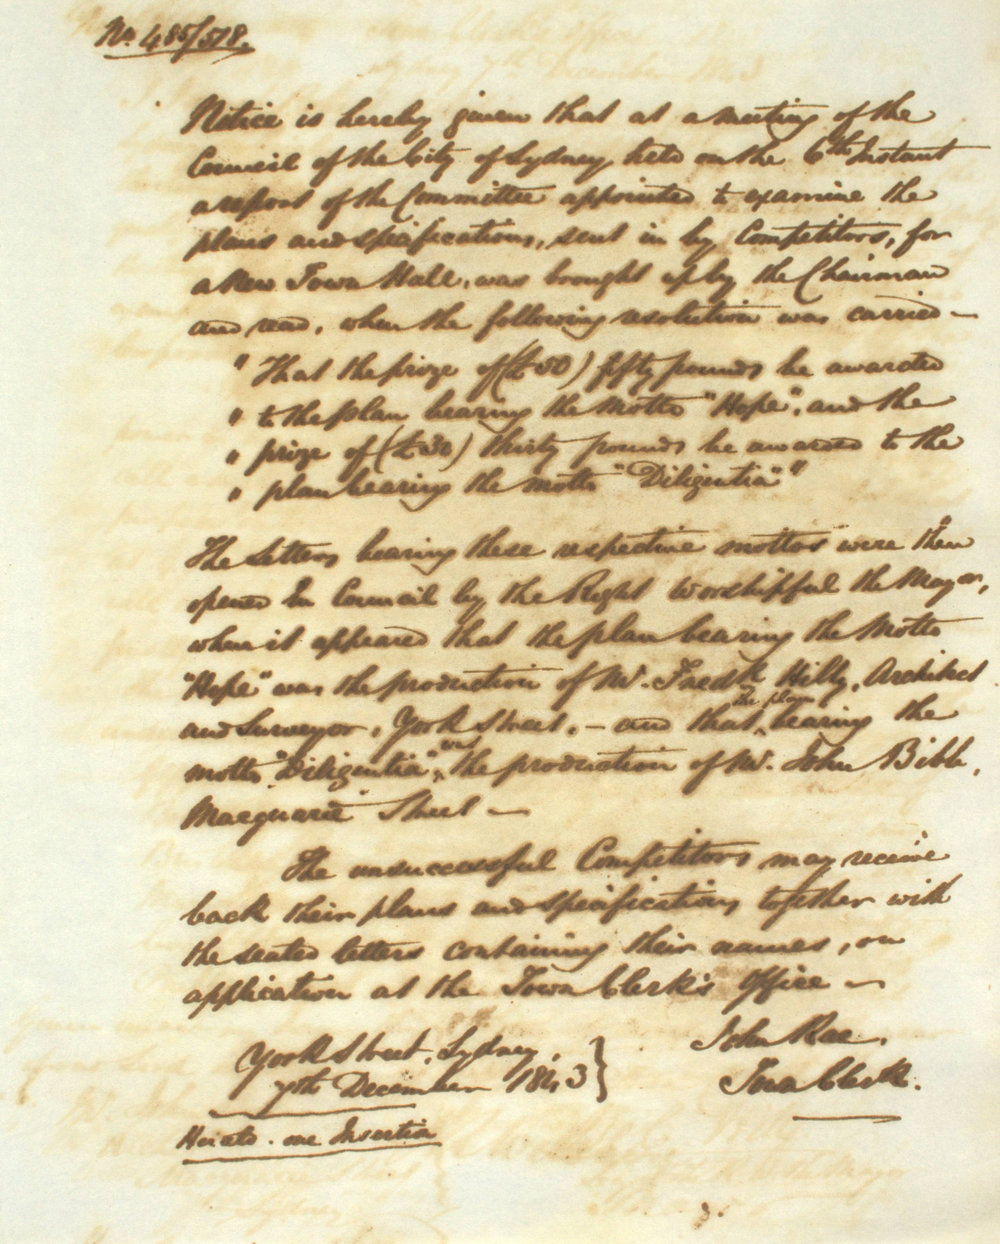 No. 485/518.
Notice is hereby given that at a meeting of the
Council of the City of Sydney, held on the 6th Instant
a report of the Committee appointed to examine the
plans and specifications, sent in by Competitors, for
a New Town Hall, was brought up by the Chairman
and read, when the following resolution was carried —
" That the prize of (£50) fifty pounds be awarded
" to the plan bearing the motto "Hope", and the
" prize of (£30) thirty pounds be awarded to the
" plan bearing the motto "Diligentia""
The Letters bearing these respective mottos were then
opened In Council by the Right Worshipful the Mayor,
when it appeared that the plan bearing the Motto
"Hope" was the production of Mr. Fredk Hilly, Architect
and Surveyor, York Street, — and that the plan bearing the
motto "Diligentia", was the production of Mr. John Bibb,
Macquarie Street —
The unsuccessful Competitors may receive
back their plans and specifications together with
the sealed letters containing their names, on
application at the Town Clerk's Office —
John Rae,
York Street, Sydney,
7th December 1843
Town Clerk.
one Insertion